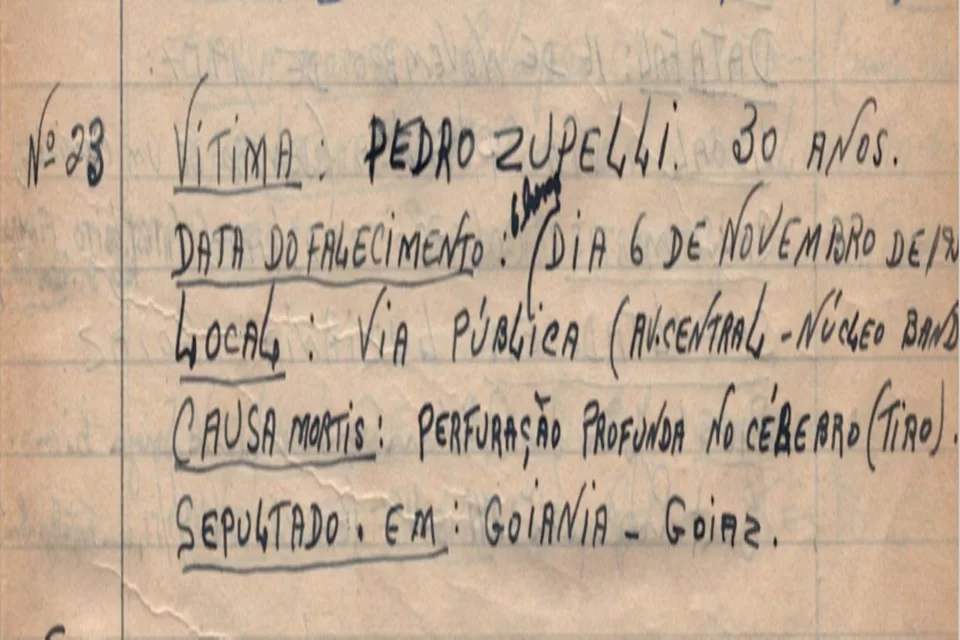 Nº 23 VÍTIMA: PEDRO ZUPELLI. 30 ANOS.
DATA DO FALECIMENTO: DIA 6 DE NOVEMBRO DE 19
LOCAL: VIA PÚBLICA (AV. CENTRAL - NÚCLEO BAND
CAUSA MORTIS: PERFURAÇÃO PROFUNDA NO CÉREBRO (TIRO).
SEPULTADO. EM: GOIANIA - GOIAZ.